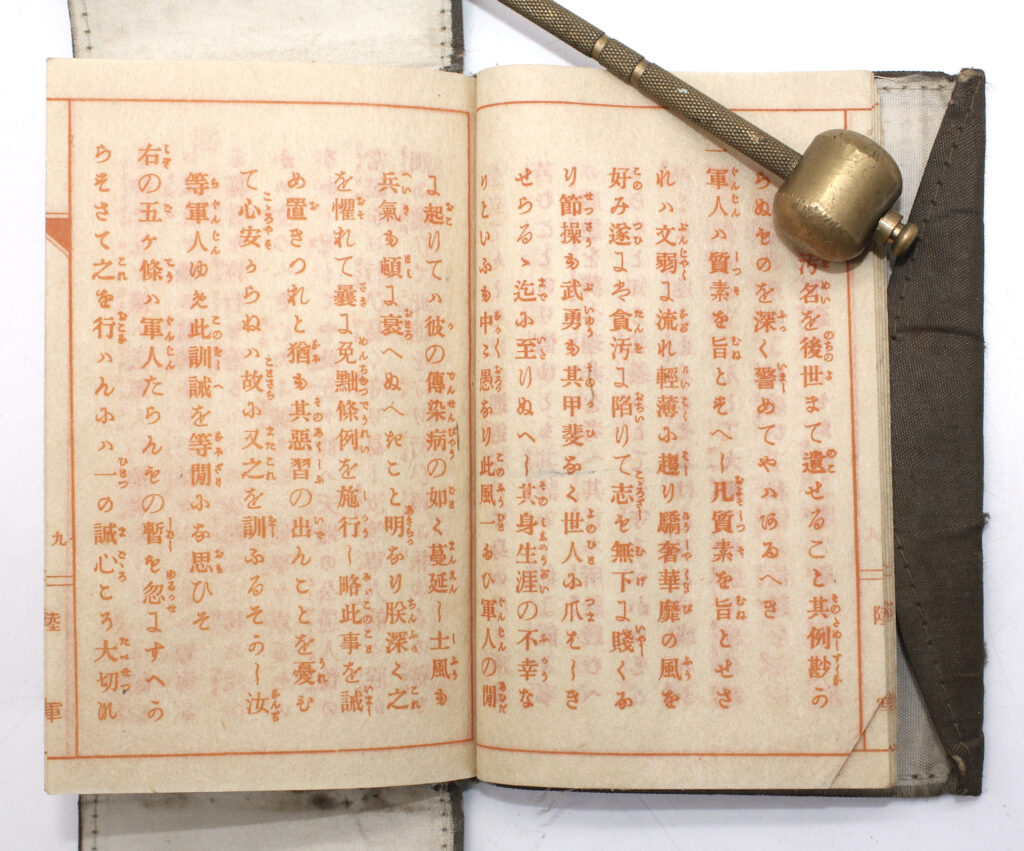 汚名を後世まて遺せること其例尠か
らぬものを深く警めてやハあるへき
一軍人ハ質素を旨とすへし凡質素を旨とせさ
れハ文弱に流れ輕薄に趨り驕奢華靡の風を
好み遂にハ貪汚に陷りて志も無下に賤くな
り節操も武勇も其甲斐なく世人に爪はしき
せらるゝ迄に至りぬへし其身生涯の不幸な
りといふも中々愚なり此風一たひ軍人の閒
に起りてハ彼の傳染病の如く蔓延し士風も
兵氣も頓に衰へぬへきこと明なり朕深く之
を懼れて曩に免黜條例を施行し略此事を誡
め置きつれと猶も其惡習の出んことを憂ひ
て心安からねハ故に又之を訓ふるそかし汝
等軍人ゆめ此訓誡を等閒にな思ひそ
右の五ヶ條ハ軍人たらんもの暫も忽にすへか
らすさて之を行ハんにハ一の誠心こそ大切な
九
陸軍